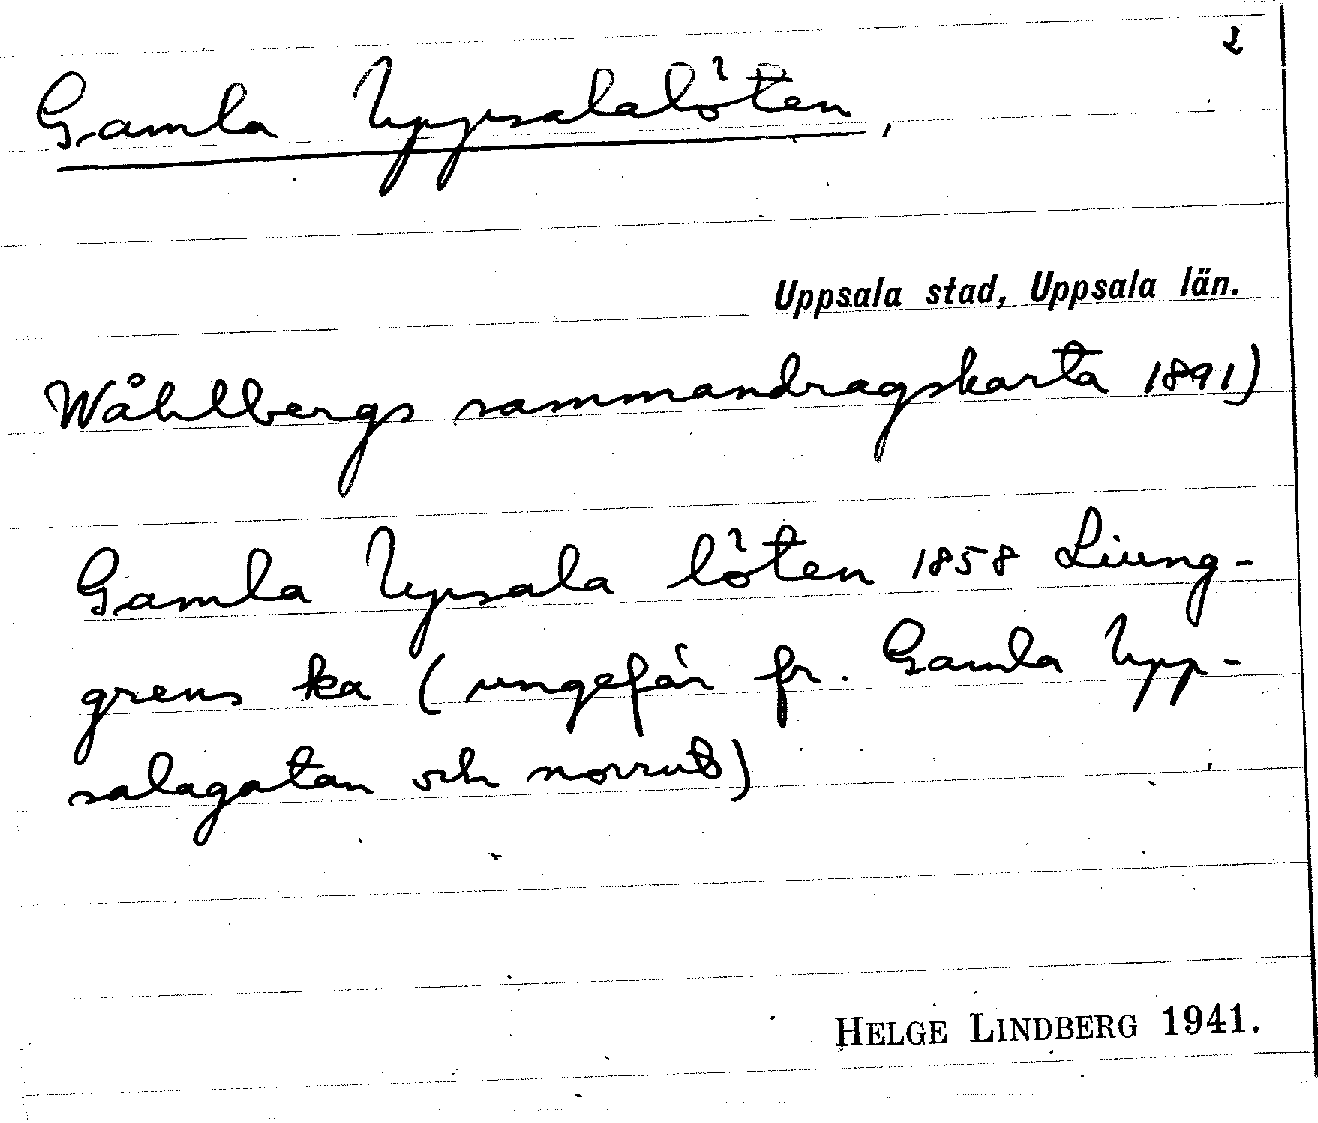 2
Gamla Uppsalalöten,
Uppsala stad, Uppsala län.
Wåhlbergs sammandragskarta 1891)
Gamla Upsala löten 1858 Liung-
grens ka (ungefär fr. Gamla Upp-
salagatan och norrut)
HELGE LINDBERG 1941.